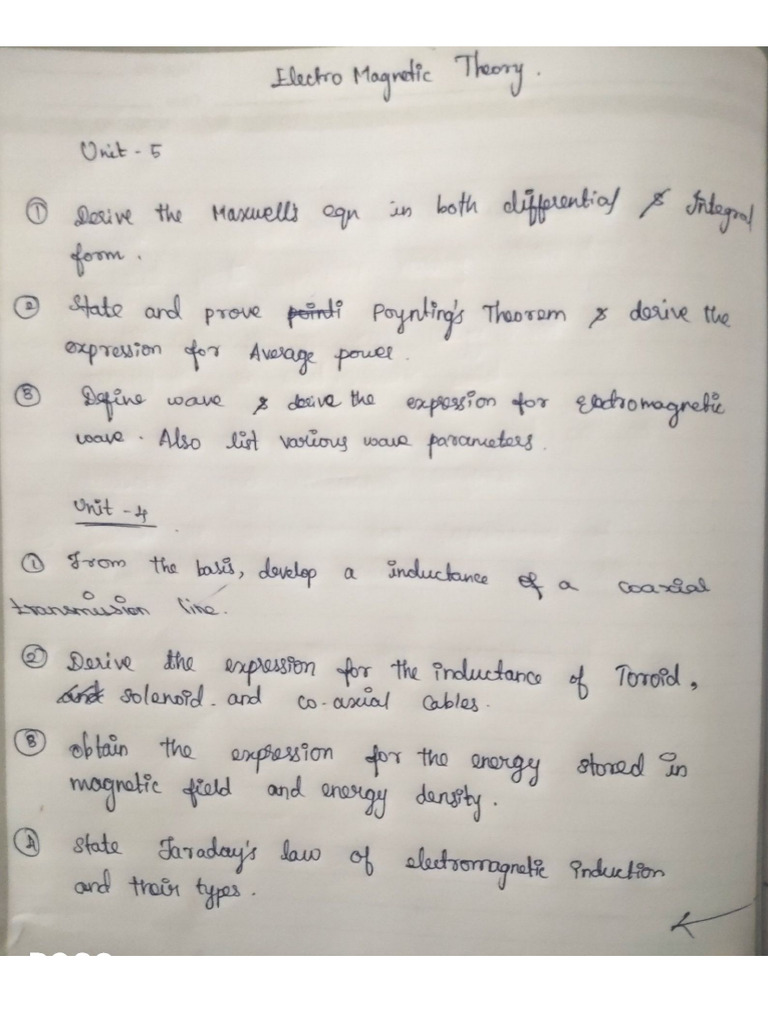 Electro Magnetic Theory.
Unit - 5
① Derive the Maxwell's eqn in both differential & Integral
form.
② State and prove Poynting's Theorem & derive the
expression for Average power.
③ Define wave & derive the expression for electromagnetic
wave. Also list various wave parameters.
Unit - 4
① From the basis, develop a inductance of a coaxial
transmission line.
② Derive the expression for the inductance of Toroid,
solenoid. and co-axial cables.
③ obtain the expression for the energy stored in
magnetic field and energy density.
④ State Faraday's law of electromagnetic induction
and their types.